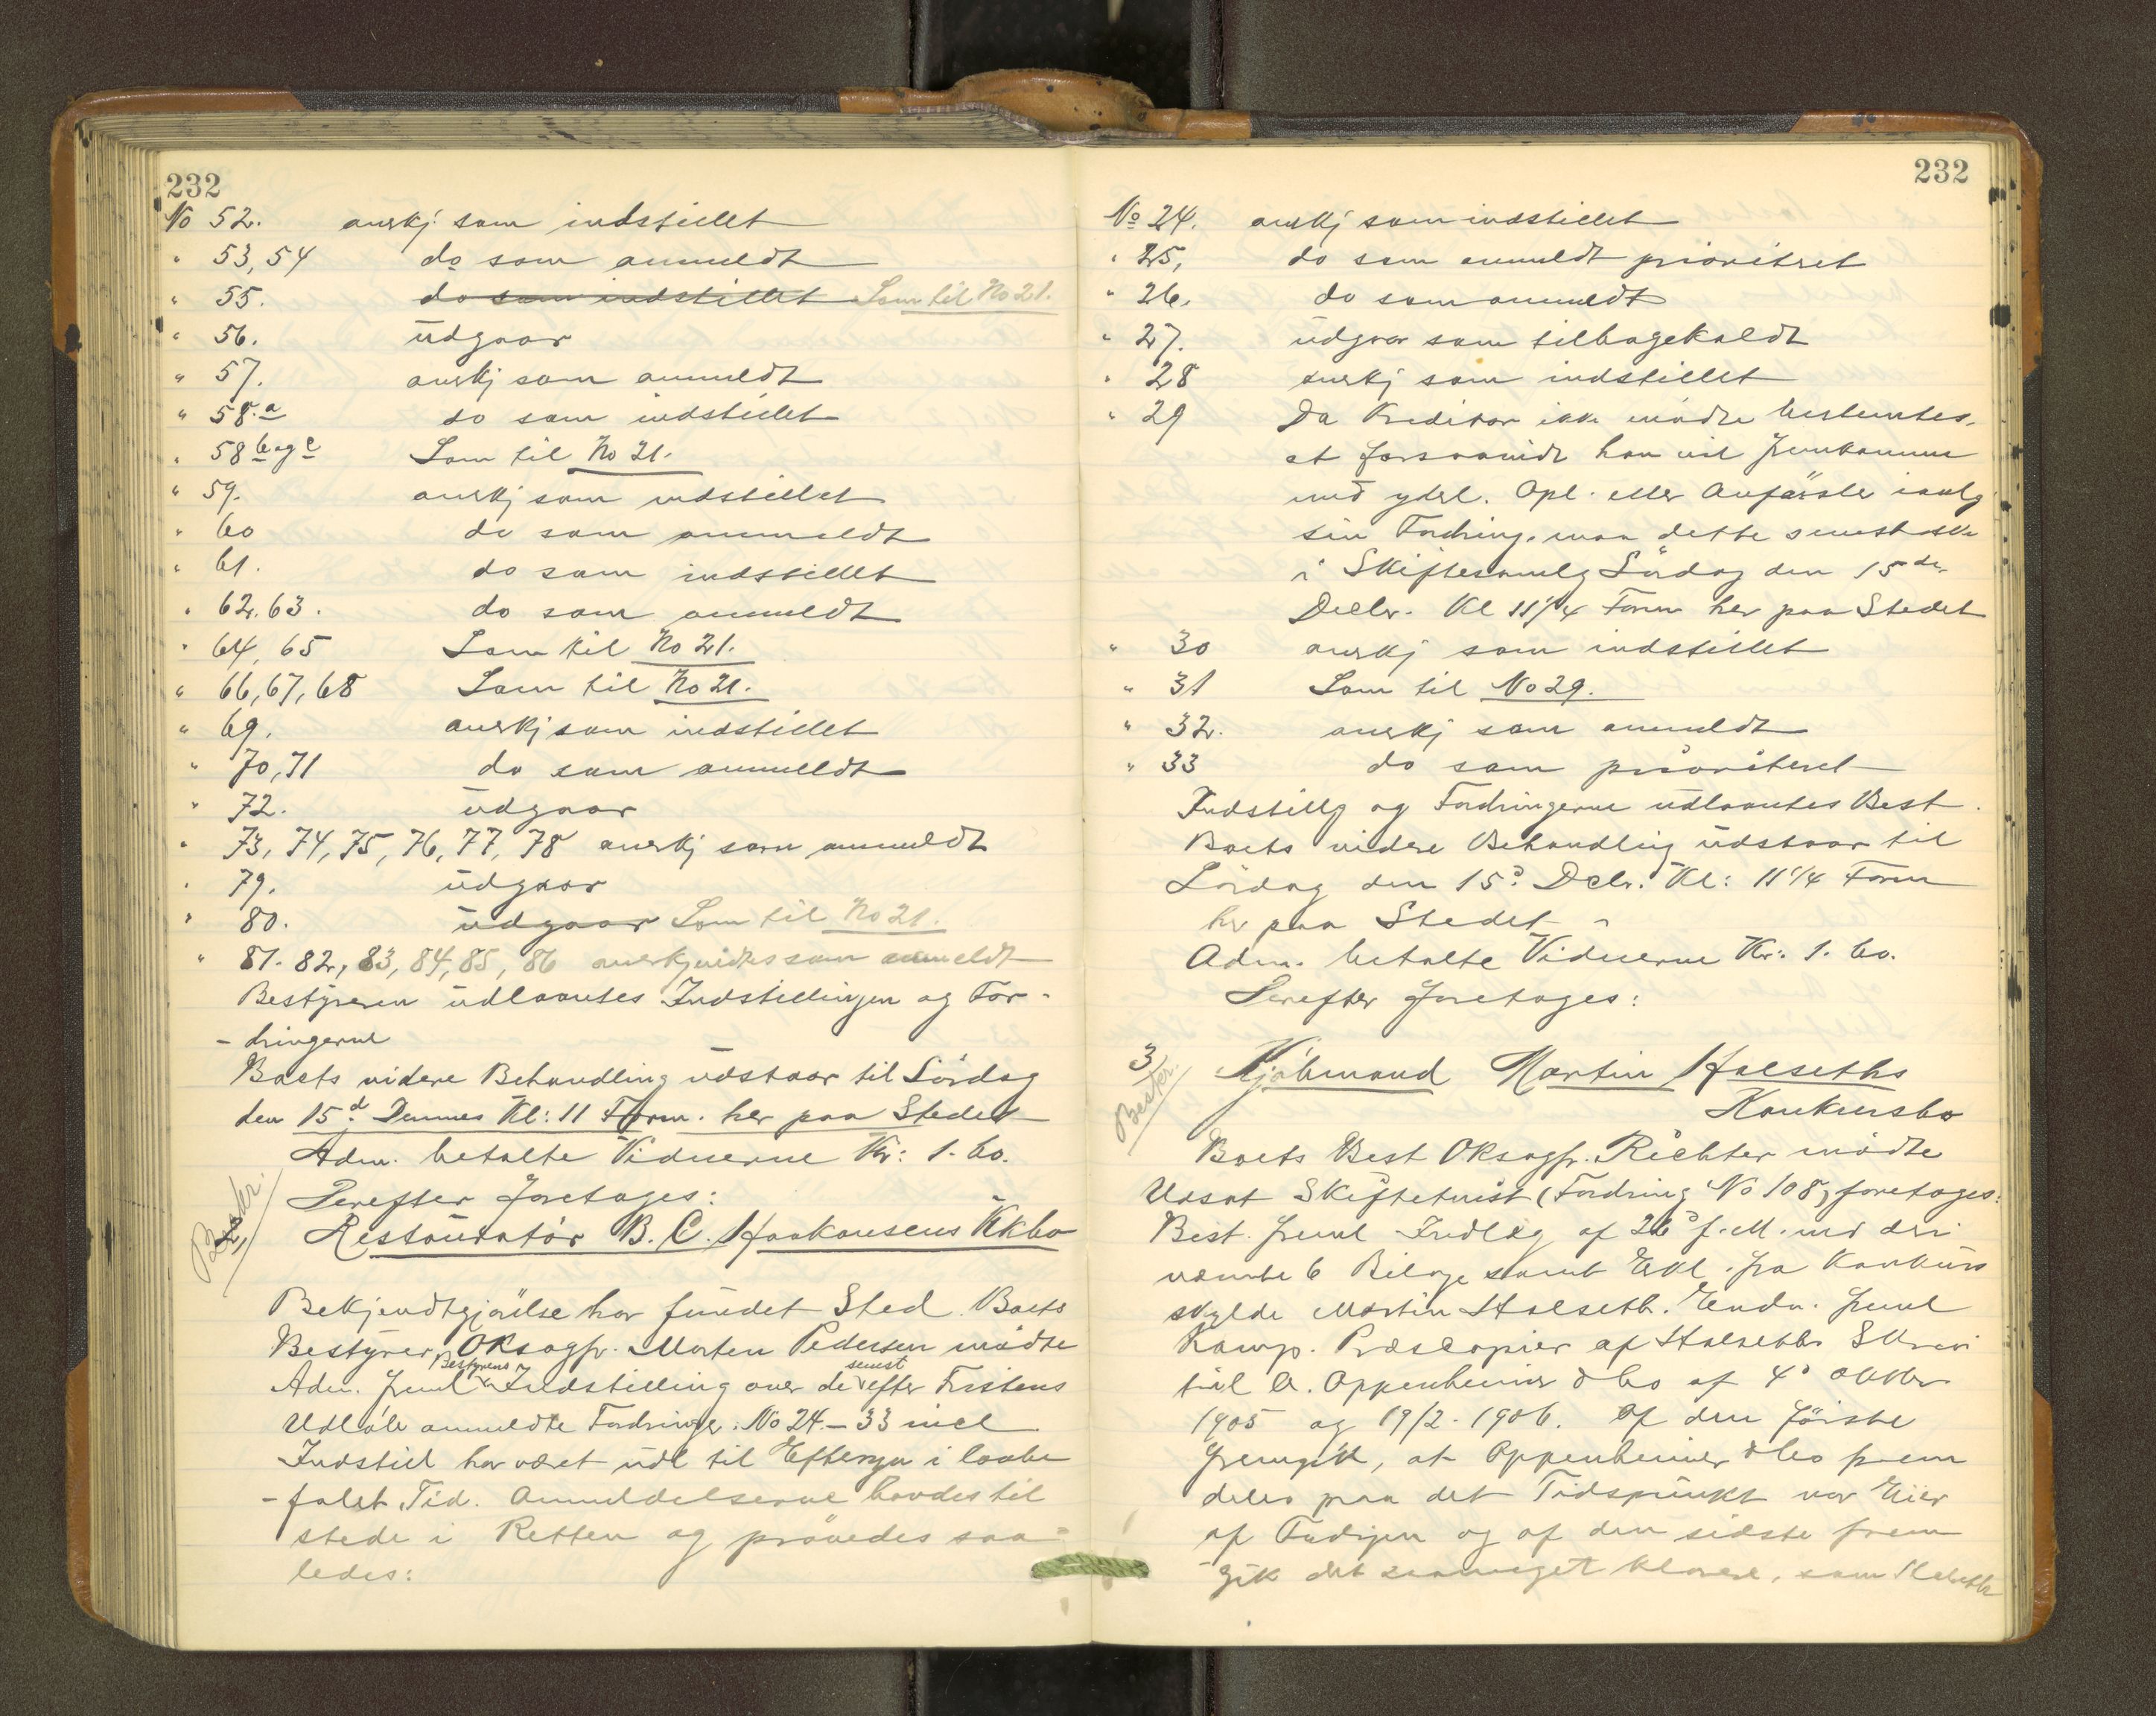 232
No 52. anerkj som indstillet
" 53, 54 do som anmeldt
" 55. do som indstillet Som til No 21.
" 56. udgaar
" 57. anerkj som anmeldt
" 58.a do som indstillet
" 58 b og c Som til No 21.
" 59. anerkj som indstillet
" 60 do som anmeldt
" 61. do som indstillet
" 62. 63. do som anmeldt
" 64, 65 Som til No 21.
" 66, 67, 68 Som til No 21.
" 69. anerkj som indstillet
" 70, 71 do som anmeldt
" 72. udgaar
" 73, 74, 75, 76, 77, 78 anerkj som anmeldt
" 79. udgaar
" 80. udgaar Som til No 21.
" 81. 82, 83, 84, 85, 86 anerkjendtes som anmeldt
Bestyreren udlaantes Indstillingen og For-
-dringerne
Boets videre Behandling udstaar til Lördag
den 15d Dennes Kl: 11 Form. her paa Stedet
Adm. betalte Vidnerne Kr: 1.60.
Derefter foretages:
Restauratör B. C. Haakonsens Kkbo
Bekjendtgjörelse har fundet Sted. Boets
Bestyrer, OKsagfr. Morten Pedersen mödte
Adm. freml Bestyrerens Indstilling over de senest efter Fristens
Udlöb anmeldte Fordringer: No 24 - 33 incl
Indstill har været udl til Eftersyn i lovbe
-falet Tid. Anmeldelserne havdes til
stede i Retten og prövedes saa-
ledes:
232
No 24. anerkj som indstillet
" 25, do som anmeldt prioritret
" 26. do som anmeldt
" 27. udgaar som tilbagekaldt
" 28 anerkj som indstillet
" 29 Da Kreditor ikke mödte bestemtes,
at forsaavidt han vil fremkomme
med yderl. Opl. eller Anförsler ianlg
sin Fordring, maa dette senest ske
i Skiftesamlg Lördag den 15de
Decbr. Kl 11 1/4 Form her paa Stedet
" 30 anerkj som indstillet
" 31 Som til No 29.
" 32. anerkj som anmeldt
" 33 do som prioriteret
Indstillg og Fordringerne udlaantes Best.
Boets videre Behandling udstaar til
Lördag den 15d Dcbr. Kl: 11 1/4 Form
her paa Stedet
Adm. betalte Vidnerne Kr: 1.60.
Derefter foretages:
3 Kjöbmand Martin Halseths
Konkursbo
Boets Best OKsagfr. Richter mödte
Udsat Skiftetvist (Fordring No 108) foretages:
Best. freml Indlæg af 26d f. M. med deri
nævnte 6 Bilage samt Erkl. fra Konkurs
skylder Martin Halseth. Endv. freml
Komp. Præskopier af Halseths Skriv
til A. Oppenheimer & Co af 4d Oktbr
1905 og 19/2-1906. Af den förste
fremgik, at Oppenheimer & Co frem
deles paa det Tidspunkt var Eier
af og af den sidste frem
gik det saameget klarere, som Halseth